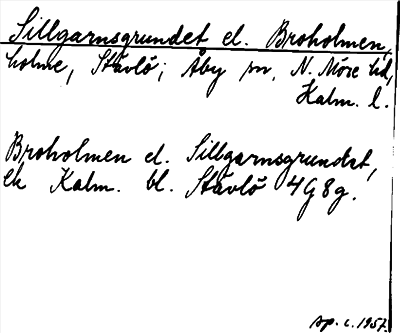 Sillgarnsgrundet el. Broholmen,
holme, Stävlö; Åby sn, N. Möre hd,
Kalm. l.
Broholmen el. Sillgarnsgrundet,
ek Kalm. bl. Stävlö 4G8g.
sp. c. 1957.